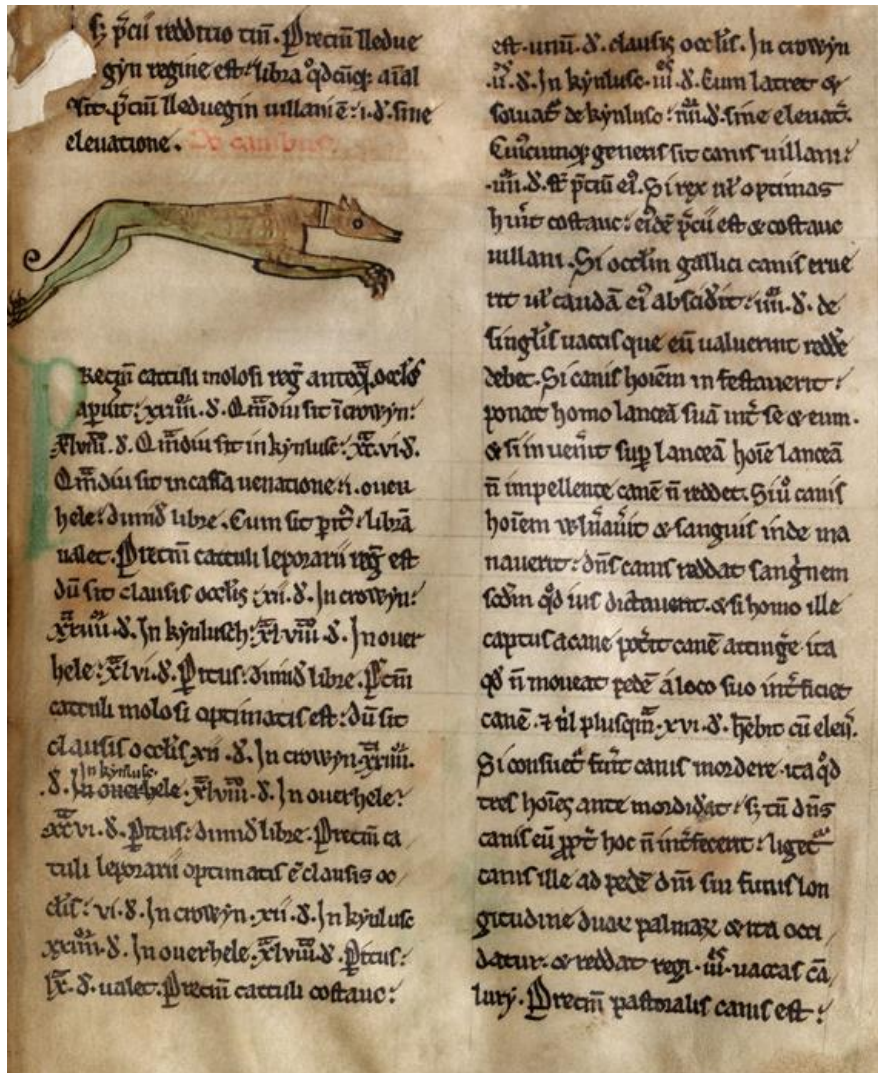 s; p̄ciū redditio tm̄. Preciū lledue
gyn regine est: libra qͦdcūq; aīal
sit. p̄ciū lleduegin uillani ē: .i. d. sine
eleuatione. De canibus.
Preciū catuli molosi reḡ anteq̄ͣ ocl̄os
apīuit: xxiiii. d. Q̄mdiu sit ī crowyn:
xlviii. d. Q̄mdiu sit in kynluse: xc.vi. d.
Q̄mdiu sit in cassa uenatione .i. oueu
hele: dimiđ libre. Cum sit pitͦ: librā
ualet. Preciū catuli leporarii reḡ est
dū sit clausis occl̄is: xii. d. In crowyn:
xxiiii. d. In kynlusch: xlviii. d. In ouer
hele: xlvi. d. Pitus: dimiđ libre. P̄ciū
catuli molosi optimatis est: dū sit
clausis occl̄is xii. d. In crowyn xxiiii.
In kynluse.
d. In ouerhele. xlviii. d. In ouerhele:
xcvi. d. Pitus: dimiđ libre. Preciū ca
tuli leporarii optimatis ē clausis oc
cl̄is: vi. d. In crowyn. xii. d. In kynluse
xxiiii. d. In ouerhele xlviii. d. Pitus:
lx. d. ualet. Preciū catuli costauc:
est. unū. d. clausis occl̄is. In crowyn
.ii. d. In kynlusc. iii. d. Cum latret &
soluat̄ de kynluso: iiii. d. sine eleuat̄.
Cuiꝰcunq; generis sit canis uillani:
.iiii. d. est p̄ciū eiꝰ. Si rex ul̄ optimas
huīt costauc: eidē p̄cii est & costauc
uillani. Si occl̄m gallici canis erue
rit ul̄ caudā eiꝰ absciđit: iiii. d. de
singl̄is uaccis que eū ualuerint redđe
debet. Si canis hoīem infestauerit:
ponat homo lanceā suā int̄ se & eum.
& si inuen̄it sup lanceā hoīe lanceā
n̄ impellente canē n̄ reddet. Si uͦ canis
hoīem uulnāuit & sanguis inde ma
nauerit: dn̄s canis reddat sang̊nem
scđm qđ ius dictauerit. & si homo ille
captus a cane pot̄it canē attinḡe ita
qđ n̄ moueat pedē a loco suo int̄ficiet
canē. ⁊ n̄l plusq̄ͣ. xvi. d. hēbit cū eleu̅.
Si consuet̄ fūit canis mordere. ita qͦd
tres hoīes ante mordiđat: s; tū dn̄s
canis eū ppt̄ hoc n̄ int̄fecerit: liget̄
canis ille ad pedē dn̄i sui funis lon
gitudine duaꝝ palmaꝝ & ita occi
datur. & reddat regi. iii. uaccas cā
lury. Preciū pastoralis canis est: